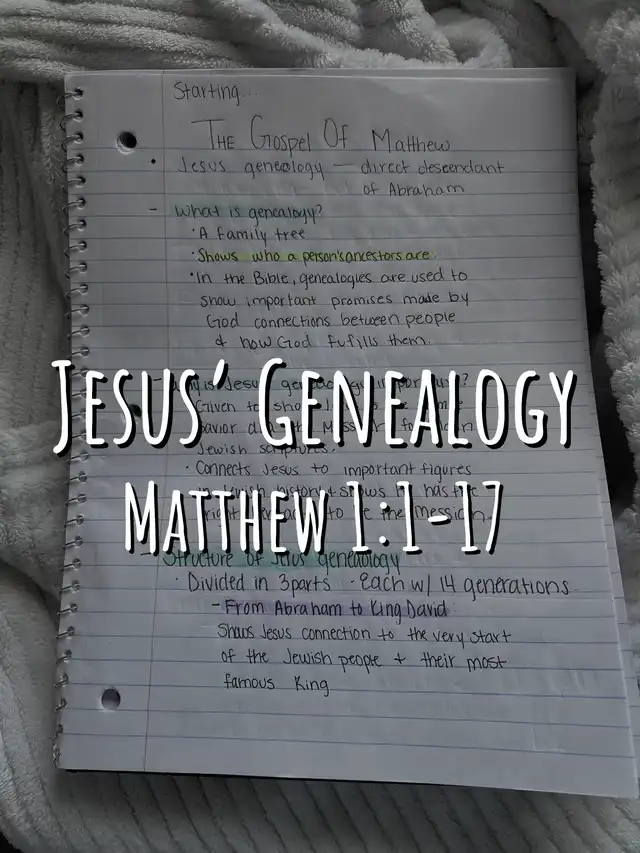 Starting...
THE Gospel Of Matthew
• Jesus genealogy — direct descendant
of Abraham
- What is genealogy?
• A family tree
• Shows who a person's ancestors are.
• In the Bible, genealogies are used to
show important promises made by
God connections between people
& how God fufills them.
JESUS' GENEALOGY
Given to
Jewish scriptures.
• Connects Jesus to important figures
MATTHEW 1:1-17
- Structure of Jesus genealogy
• Divided in 3 parts • Each w/ 14 generations
- From Abraham to King David:
Shows Jesus connection to the very start
of the Jewish people + their most
famous King